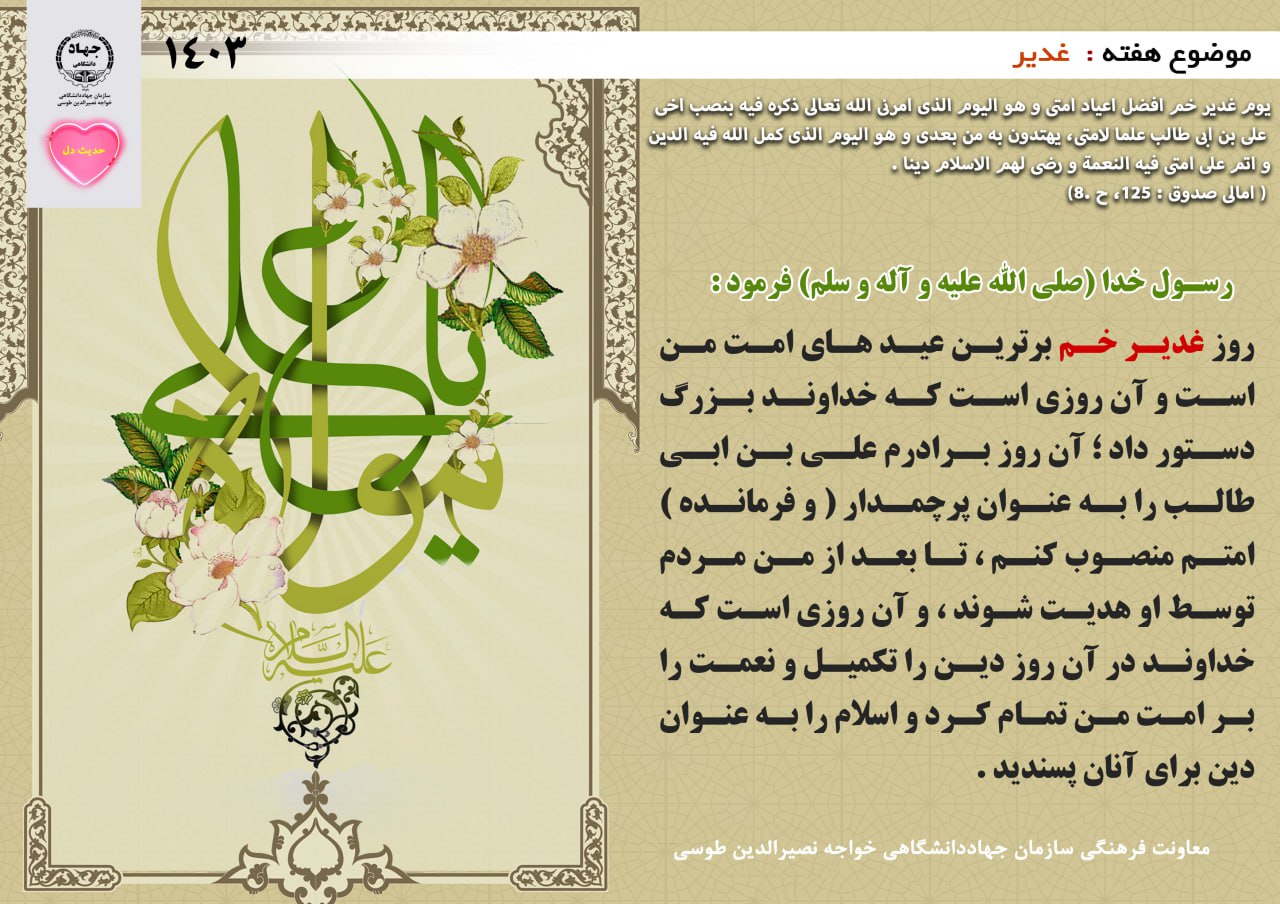 موضوع هفته : غدیر
۱٤۰۳
جهاد
دانشگاهی
سازمان جهاددانشگاهی
خواجه نصیرالدین طوسی
حدیث دل
یوم غدیر خم افضل اعیاد امتی و هو الیوم الذی امرنی الله تعالی ذکره فیه بنصب اخی
علی بن ابی طالب علما لامتی، یهتدون به من بعدی و هو الیوم الذی کمل الله فیه الدین
و اتم علی امتی فیه النعمة و رضی لهم الاسلام دینا .
( امالی صدوق : 125، ح .8)
رسـول خدا (صلی الله علیه و آله و سلم) فرمود :
روز غدیـر خـم برترین عیـد هـای امـت مـن
اسـت و آن روزی اسـت کـه خداونـد بـزرگ
دسـتور داد ؛ آن روز بـرادرم علـی بـن ابـی
طالـب را بـه عنـوان پرچمـدار ( و فرمانـده )
امتـم منصـوب کنـم ، تـا بعـد از مـن مـردم
توسـط او هدیـت شـوند ، و آن روزی اسـت کـه
خداونـد در آن روز دیـن را تکمیـل و نعمـت را
بـر امـت مـن تمـام کـرد و اسلام را بـه عنـوان
دین برای آنان پسندید .
علیه السلام
معاونت فرهنگی سازمان جهاددانشگاهی خواجه نصیرالدین طوسی